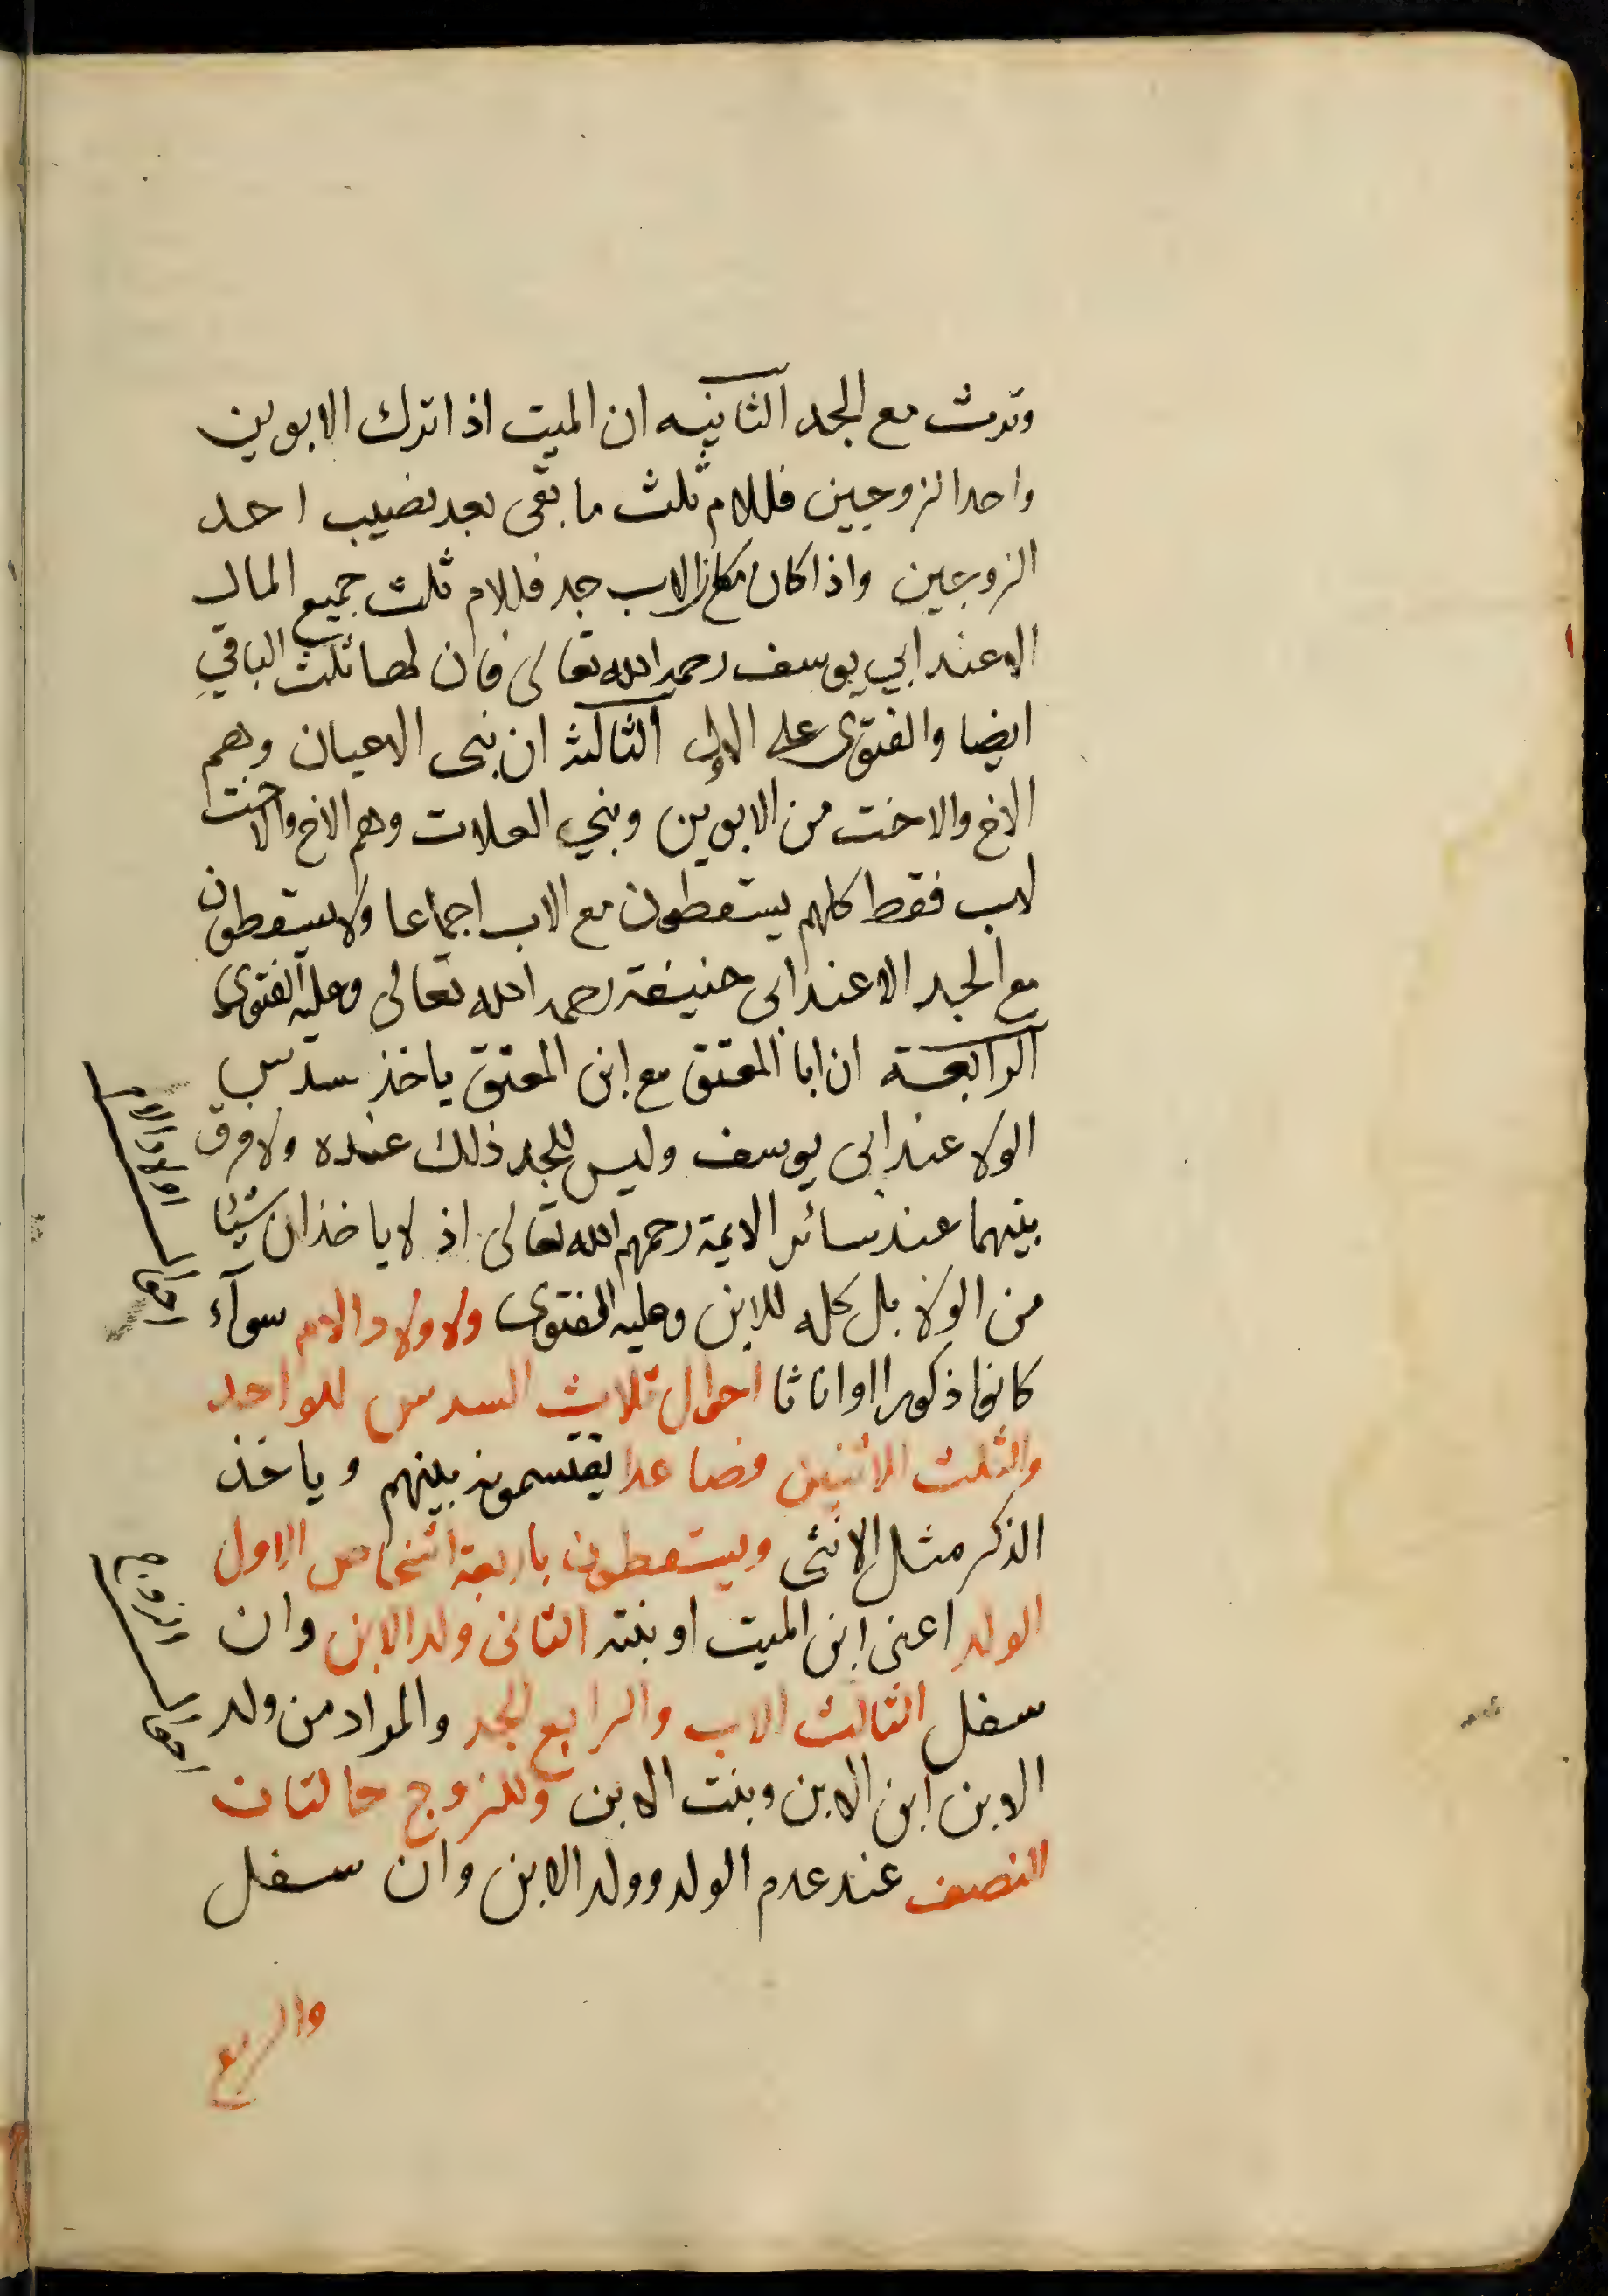 وترث مع الجد الثانيه ان الميت اذا ترك الابوين
واحد الزوجين فللام ثلث ما بقى بعد نصيب احد
الزوجين واذا كان مكان الاب جد فللام ثلث جميع المال
الا عند ابي يوسف رحمه الله تعالى فان لها ثلث الباقي
ايضا والفتوى على الاول الثالثة ان بنى الاعيان وهم
الاخ والاخت من الابوين وبني العلات وهم الاخ والاخت
لاب فقط كلهم يسقطون مع الاب اجماعا ولا يسقطون
مع الجد الا عند ابى حنيفة رحمه الله تعالى وعليه الفتوى
الرابعة ان ابا المعتق مع ابن المعتق ياخذ سدس
الولا عند ابى يوسف وليس للجد ذلك عنده ولا فرق
بينهما عند سائر الايمة رحمهم الله تعالى اذ لا ياخذان شيئا
من الولا بل كله للابن وعليه الفتوى ولاولاد الام سوآء
كانوا ذكورا او اناثا احوال ثلاث السدس للواحد
والثلث لاثنين فصاعدا يقتسمونه بينهم وياخذ
الذكر مثل الانثى ويسقطون باربعة اشخاص الاول
الولد اعنى ابن الميت او بنته الثانى ولد الابن وان
سفل الثالث الاب والرابع الجد والمراد من ولد
الابن ابن الابن وبنت الابن وللزوج حالتان
النصف عند عدم الولد وولد الابن وان سفل
والربع
احوال اولاد الام
احوال الزوج